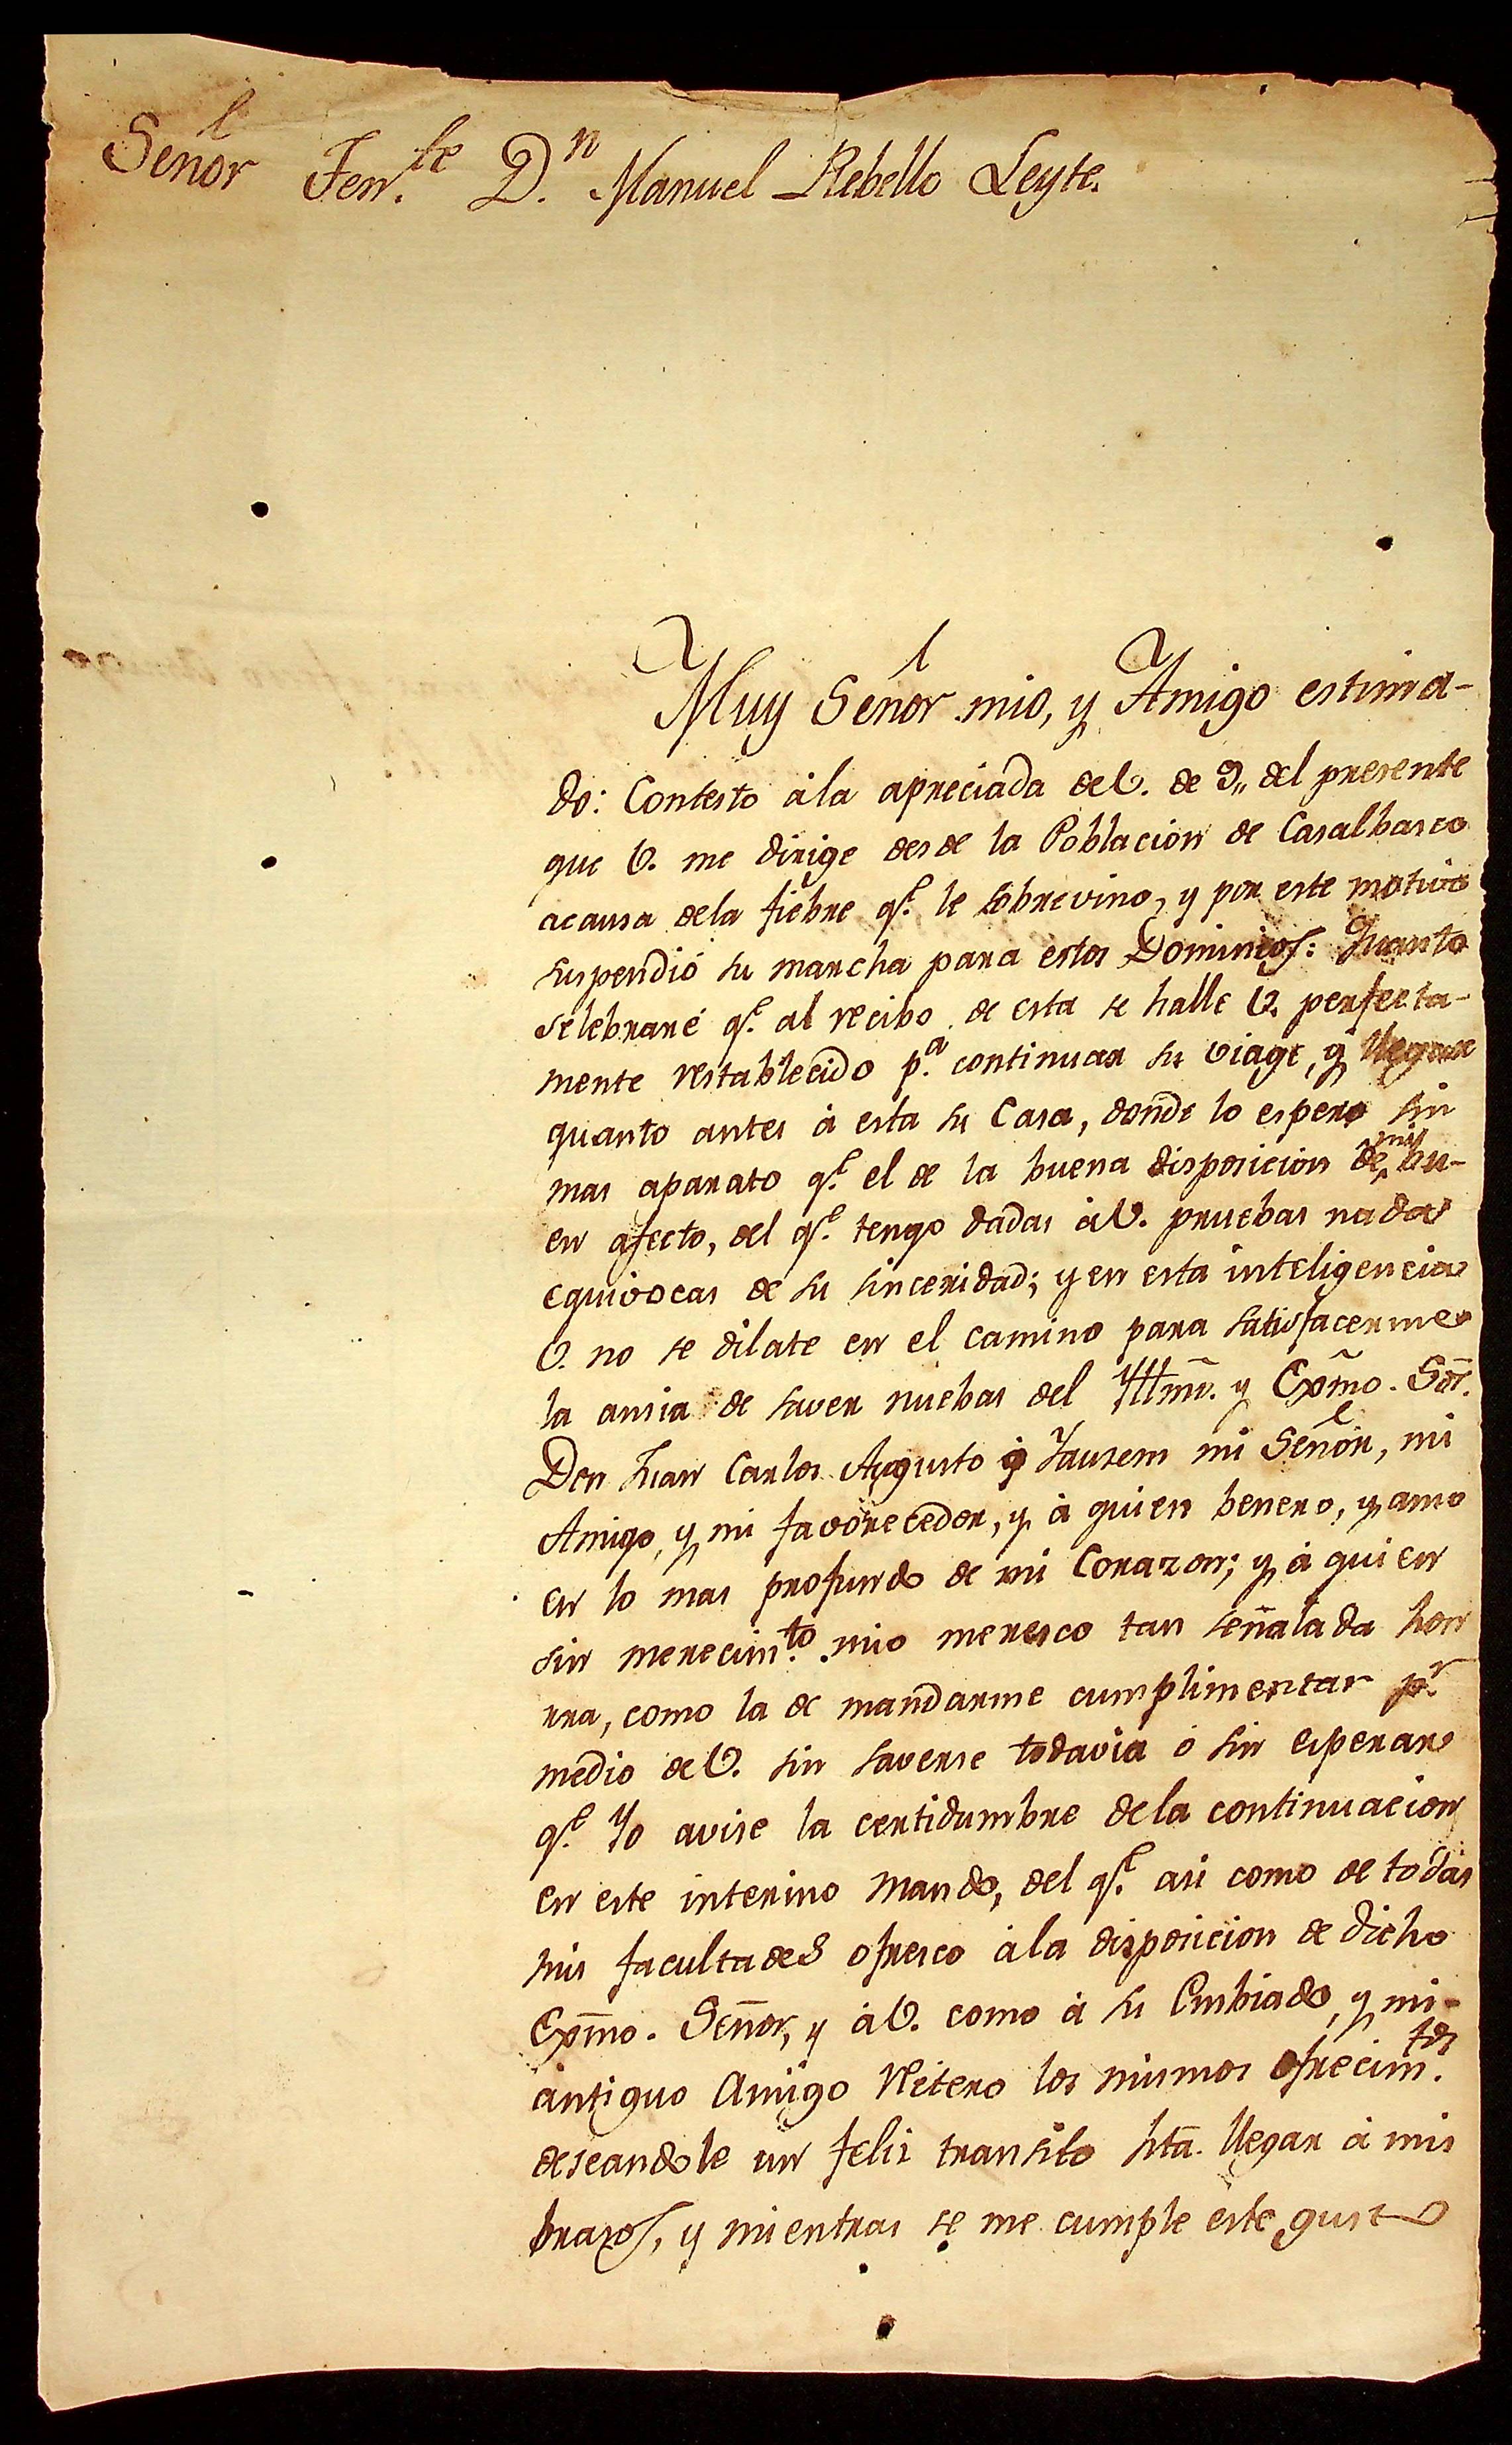 Señor Ten.te D.n Manuel Rebello Leyte.
Muy Señor mio, y Amigo estima-
do: Contesto àla apreciada deV. de 9,, del presente
que V. me dirige desde la Poblacion de Casalbasco
acausa dela fiebre q.e le sobrevino, y por este motivo
suspendió su marcha para estos Dominios: Quanto
selebraré q.e al recibo de esta se halle V. perfecta-
mente restablecido p.a continuar su viage, y llegar
quanto antes à esta su Casa, donde lo espero sin
mas aparato q.e el de la buena disposicion de mi bu-
en afecto, del q.e tengo dadas àV. pruebas nada
equivocas de su sinceridad; y en esta inteligencia
V. no se dilate en el camino para satisfacerme
la ansia de saver nuebas del Yllmõ. y Exmõ. Sõr.
Don Juan Carlos Augusto Yausem mi Señor, mi
Amigo, y mi favorecedor, y à quien benero, y amo
en lo mas profundo de mi Corazon; y à quien
sin merecim.to mio meresco tan señalada hon
rra, como la de mandarme cumplimentar p.r
medio deV. sin saverse todavia ò sin esperar
q.e Yo avise la certidumbre dela continuacion
en este interino mando, del q.e asi como de todas
mis facultades ofresco àla disposicion de dicho
Exmõ. Señor, y àV. como à su Embiado, y mi
antiguo Amigo reitero los mismos ofrecim.tos
deseandole un felis transito htã. llegar à mis
brazos, y mientras se me cumple este gusto